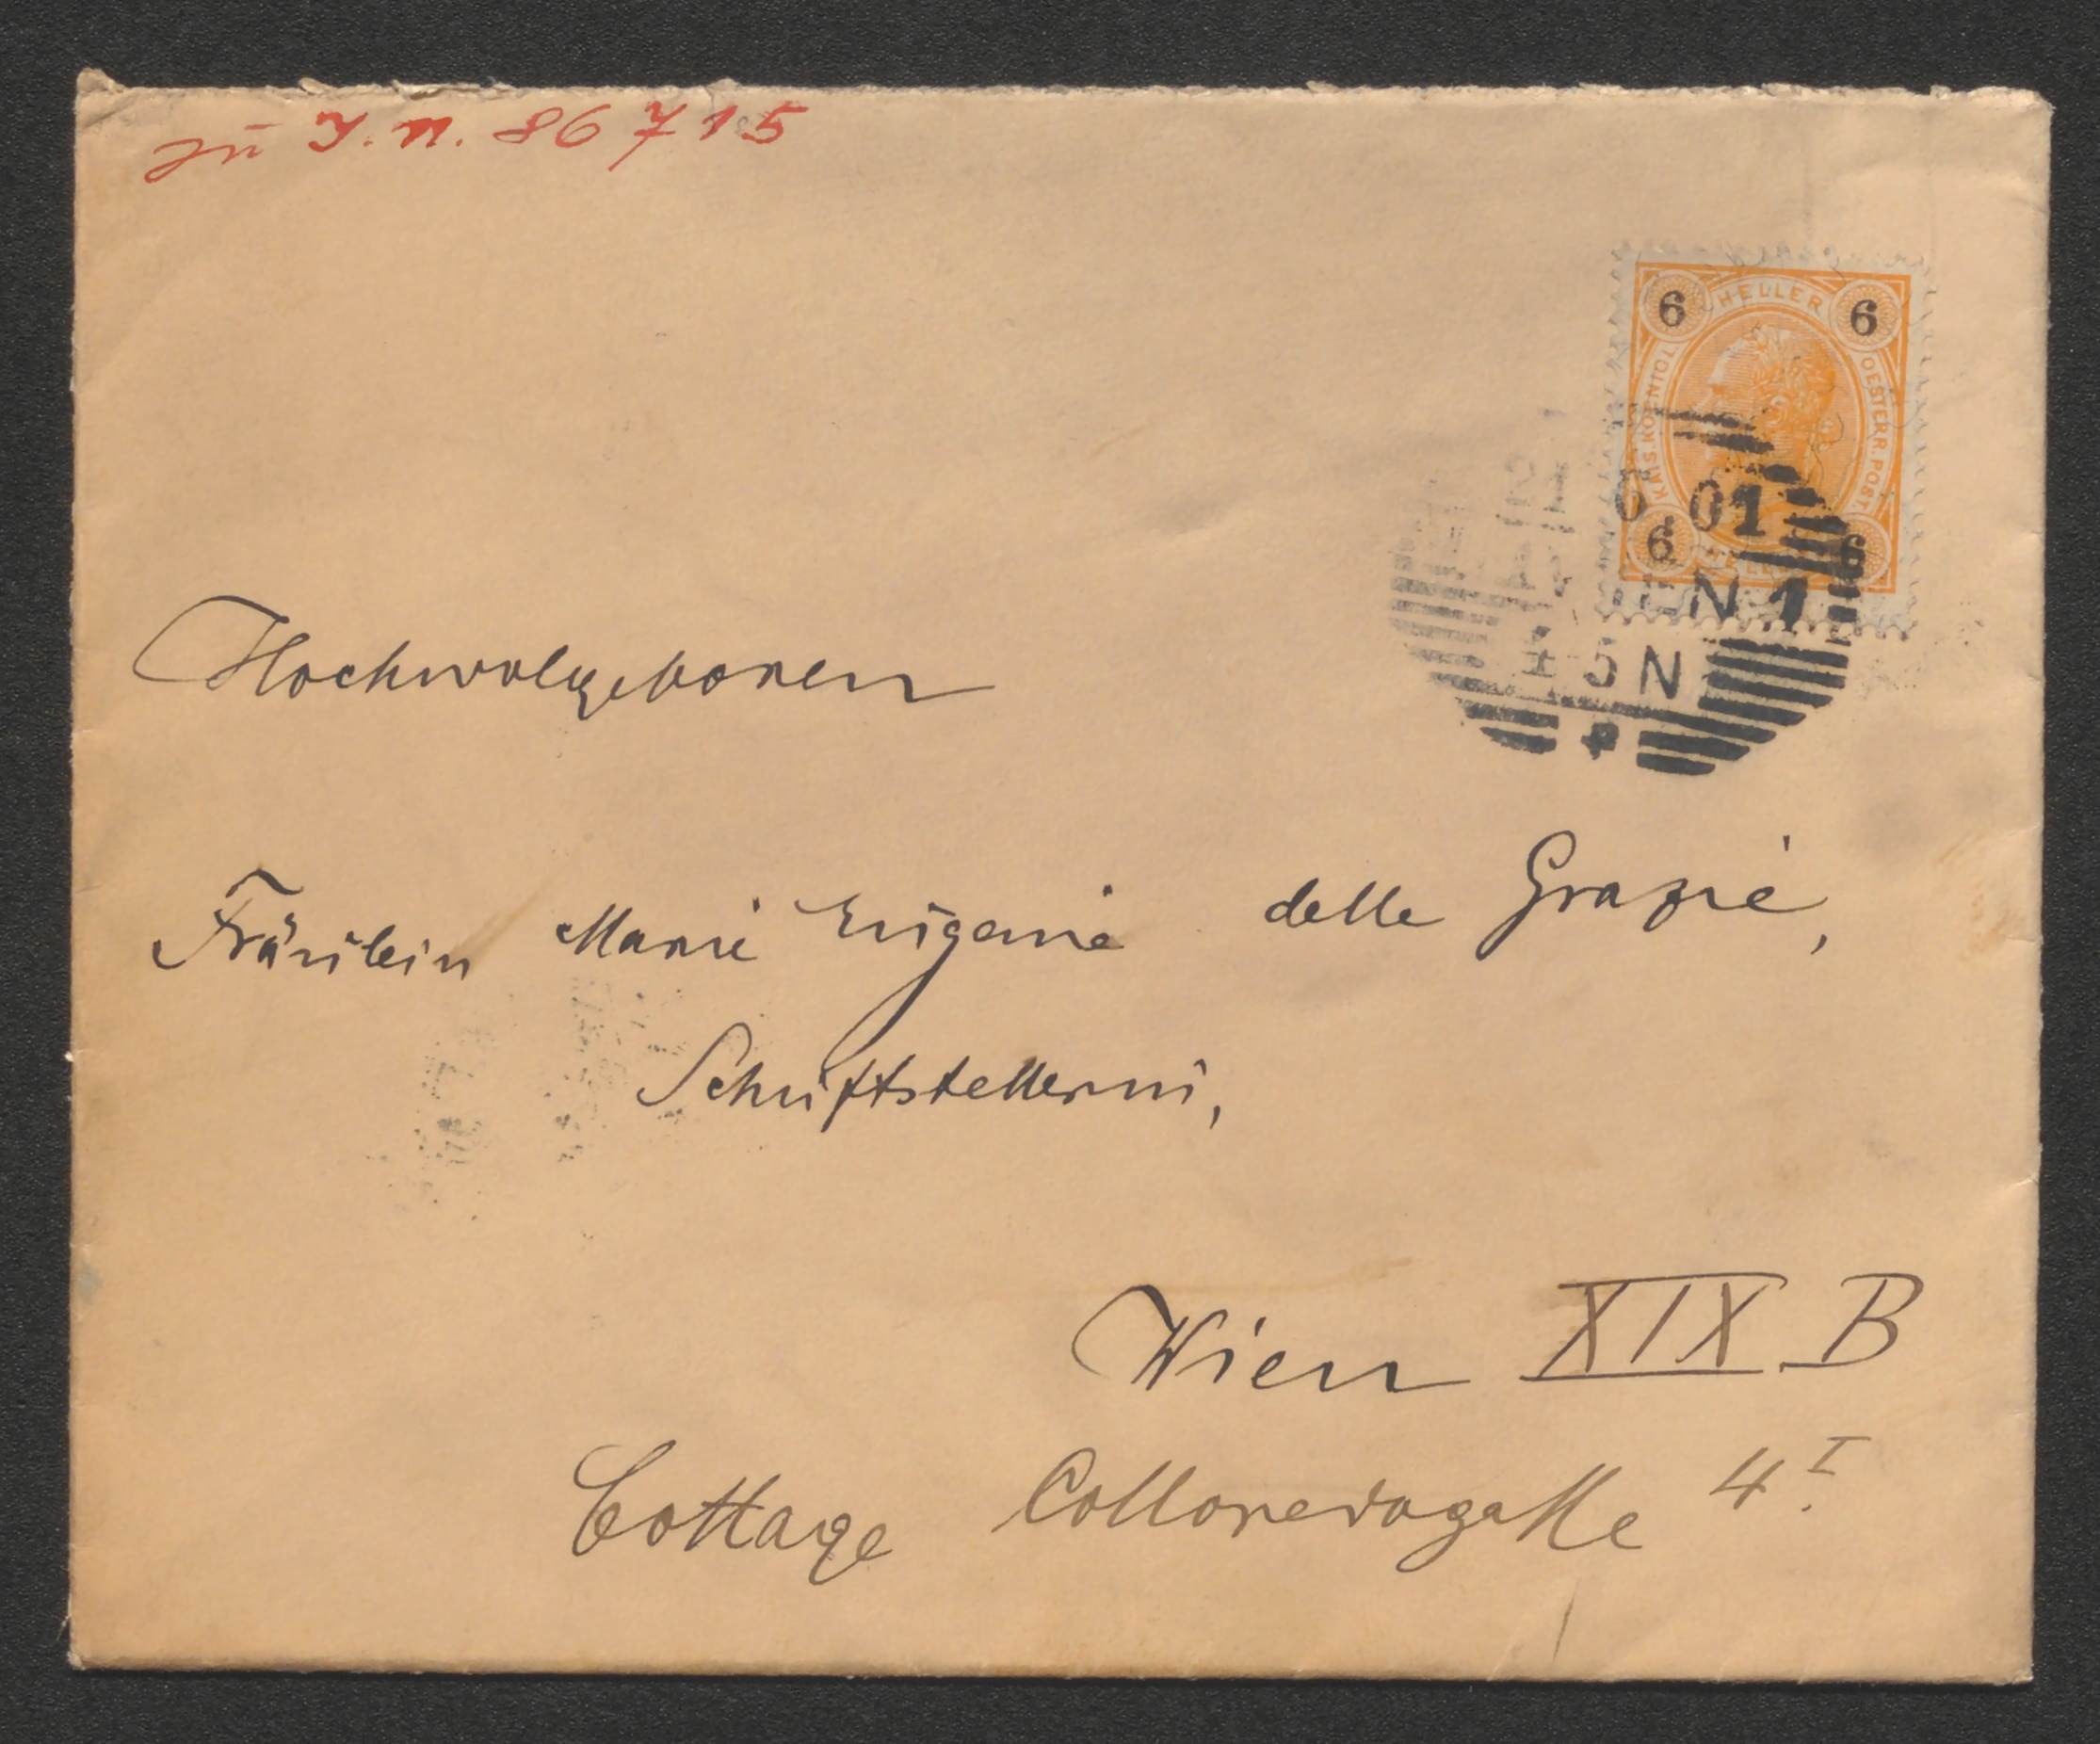 zu I.N. 86715
6 HELLER 6
KAIS. KOENIGL. OESTERR. POST
6 HELLER 6
6 01
IEN 1
1-5N
Hochwolgeboren
Fräulein Marie Eugenie delle Grazie,
Schriftstellerin,
Wien XIX B
Cottage Colloredogasse 4 I.